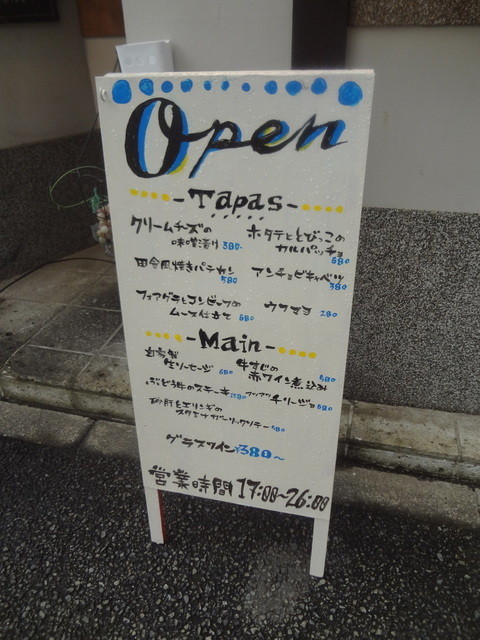 Open
-Tapas-
クリームチーズの
味噌漬け 380-
ホタテととびっこの
カルパッチョ
680
田舎風焼きパテカン
580
アンチョビキャベツ
380
フォアグラとコンビーフの
ムース仕立て 680
ウフマヨ 280
-Main-
自家製
生ソーセージ 680
牛すじの
赤ワイン煮込み
680
ぶどう牛のステーキ
チリージョ 680
砂肝とエリンギの
580
グラスワイン ¥380〜
営業時間 17:00〜26:00